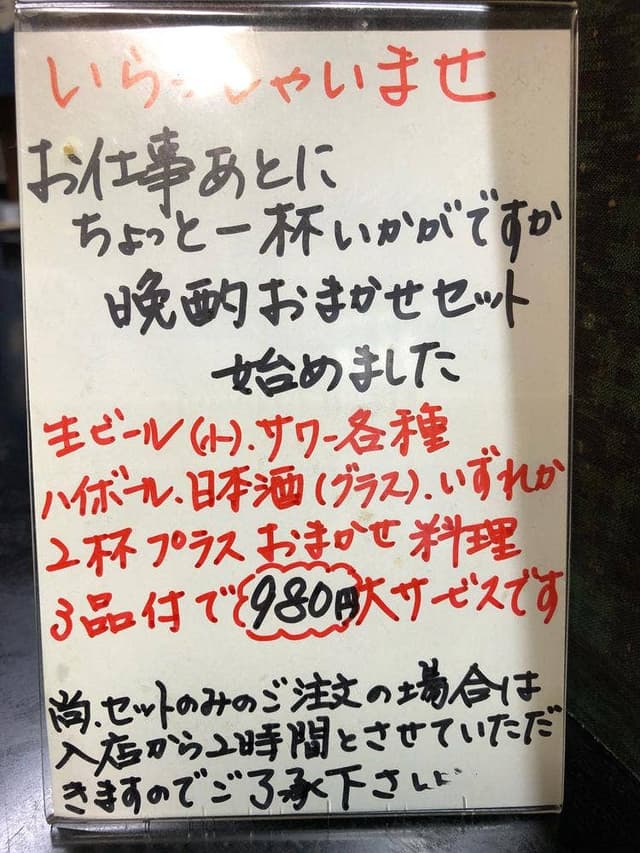 いらっしゃいませ
お仕事あとに
ちょっと一杯いかがですか
晩酌おまかせセット
始めました
生ビール(小).サワー各種
ハイボール.日本酒(グラス).いずれか
2杯プラスおまかせ料理
3品付で980円大サービスです
尚.セットのみのご注文の場合は
入店から2時間とさせていただだ
きますのでご了承下さい